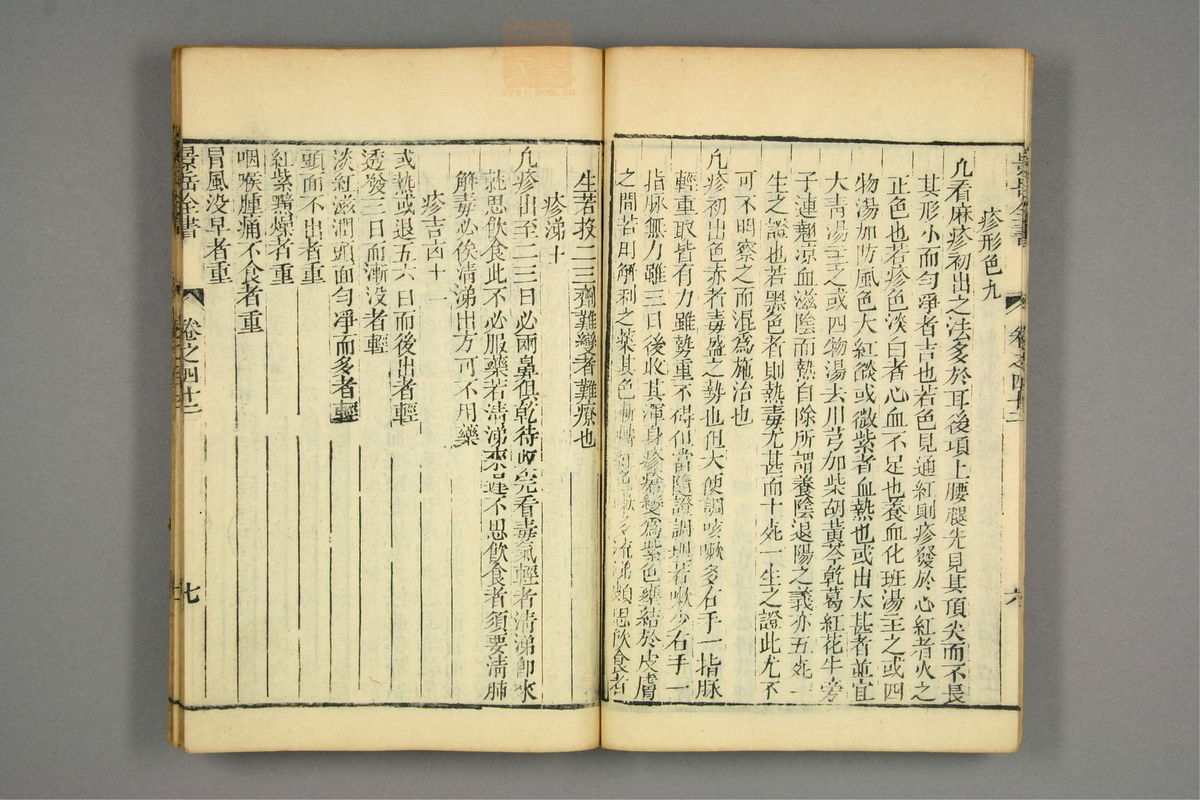 疹形色九
凡看麻疹初出之法多於耳後項上腰腿先見其頂尖而不長
其形小而勻凈者吉也若色見通紅則疹發於心紅者火之
正色也若疹色淡白者心血不足也養血化班湯主之或四
物湯加防風色大紅燄或微紫者血熱也或出太甚者並宜
大青湯主之或四物湯去川芎加柴胡黃芩乾葛紅花牛旁
子連翹凉血滋陰而熱自除所謂養陰退陽之義亦五死一
生之證也若黑色者則熱毒尤甚而十死一生之證此尤不
可不明察之而混爲施治也
凡疹初出色赤者毒盛之勢也但大便調咳嗽多右手一指脉
輕重取皆有力雖勢重不得但當隨證調理若嗽少右手一
指脉無力雖三日後收其渾身疹瘄變爲紫色壅結於皮膚
之間若用解利之藥其色漸轉紅色嗽多流涕頗思飲食者
生若投二三劑難變者難療也
疹涕十
凡疹出至二三日必兩鼻俱乾待收完看毒氣輕者清涕卽來
就思飲食此不必服藥若清涕來遲不思飲食者須要清肺
解毒必俟清涕出方可不用藥
疹吉凶十一
或熱或退五六日而後出者輕
透發三日而漸没者輕
淡紅滋潤頭面勻凈而多者輕
頭面不出者重
紅紫黯燥者重
咽喉腫痛不食者重
冒風没早者重
景岳全書
卷之四十二
六
景岳全書
卷之四十二
七